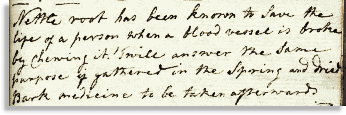 Nettle root has been known to Save the
life of a person when a blood vessel is broke
by Chewing it. Twill answer the Same
purpose if gathered in the Spring and dried
Bark medicine to be taken afterwards